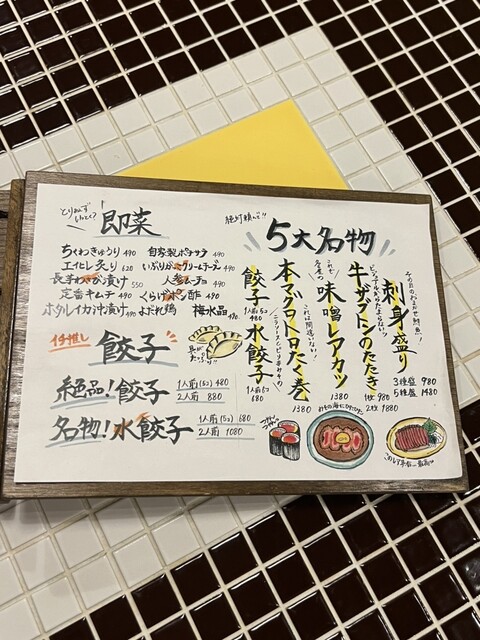 とりあえず
即菜
ちくわきゅうり 490 自家製ポテサラ 490
エイヒレ炙り 620 いぶりがっこクリームチーズ 490
長芋わさび漬け 550 人参ムーチョ 490
定番キムチ 490 くらげポン酢 490
ホタルイカ沖漬け 490 よだれ鶏 490 梅水晶 490
イチ推し 餃子
絶品!餃子 1人前(5コ) 480
2人前 880
名物!水餃子 1人前(5コ) 680
2人前 1080
絶対頼んで!!
5大名物
刺身盛り
3種盛 980
5種盛 1480
牛ザブトンのたたき
1枚 980
2枚 1880
味噌レアカツ
1380
本マグロトロたく巻
1380
餃子 1人前5コ 480
水餃子 1人前5コ 680